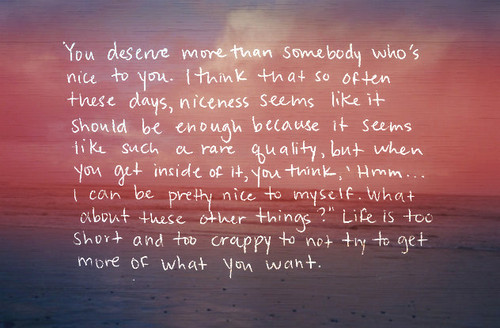 You deserve more than somebody who's
nice to you. I think that so often
these days, niceness seems like it
should be enough because it seems
like such a rare quality, but when
you get inside of it, you think, 'Hmm...
I can be pretty nice to myself. What
about these other things?' Life is too
short and too crappy to not try to get
more of what you want.